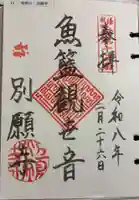 奉拝
令和八年
二月二十六日
魚籃観世音
別願寺